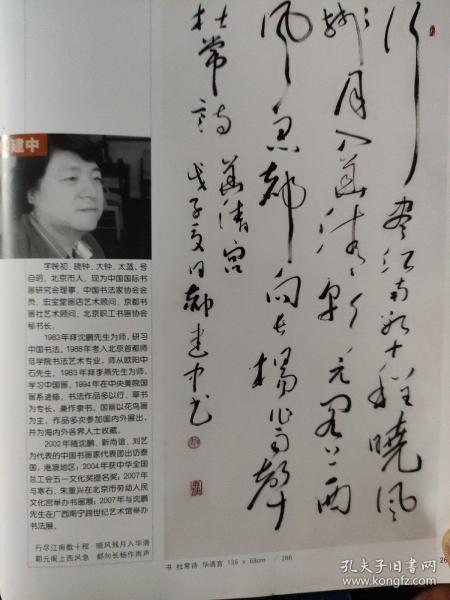 行尽江南数十程晓风
残月入华清朝元阁上西
风急都向长杨作雨声
杜常诗 华清宫
戊子夏日郝建中书
建中
字晚初、晓钟、大钟、太蓝、号
自明，北京市人，现为中国国际书
画研究会理事、中国书法家协会会
员、宏宝堂画店艺术顾问、京都书
画社艺术顾问、北京职工书画协会
秘书长。
1983年拜沈鹏先生为师，研习
中国书法。1988年考入北京首都师
范学院书法艺术专业，师从欧阳中
石先生，1983年拜李燕先生为师，
学习中国画，1994年在中央美院国
画系进修，书法作品多以行、草书
为专长，兼作隶书。国画以花鸟画为
主，作品多次参加国内外展出，
并为海内外各界人士收藏。
2002年随沈鹏、靳尚谊、刘艺
为代表的中国书画家代表团出访泰
国、港澳地区；2004年获中华全国
总工会五一文化奖提名奖；2007年
与寒石、朱重兴在北京市劳动人民
文化宫举办书画展；2007年与沈鹏
先生在广西南宁跨世纪艺术馆举办
书法展。
行尽江南数十程 晓风残月入华清
朝元阁上西风急 都向长杨作雨声
书 杜常诗 华清宫 136 x 68cm / 286
26
孔夫子旧书网